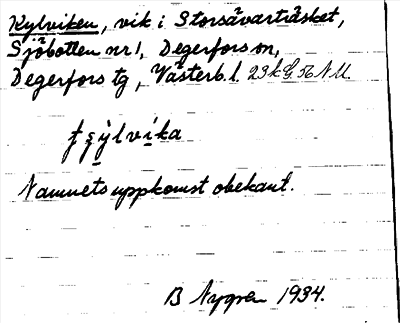 Kylviken, vik i Storsävarträsket,
Sjöbotten nr 1, Degerfors sn,
Degerfors tg, Västerb. l. 23k
Namnets uppkomst obekant.
B Nygren 1934.